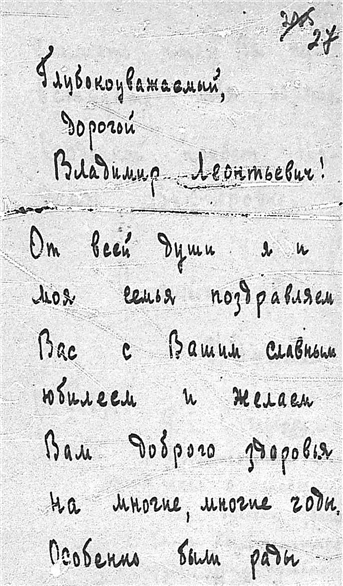 27
Глубокоуважаемый,
дорогой
Владимир Леонтьевич!
От всей души я и
моя семья поздравляем
Вас с Вашим славным
юбилеем и желаем
Вам доброго здоровья
на многие, многие годы.
Особенно были рады